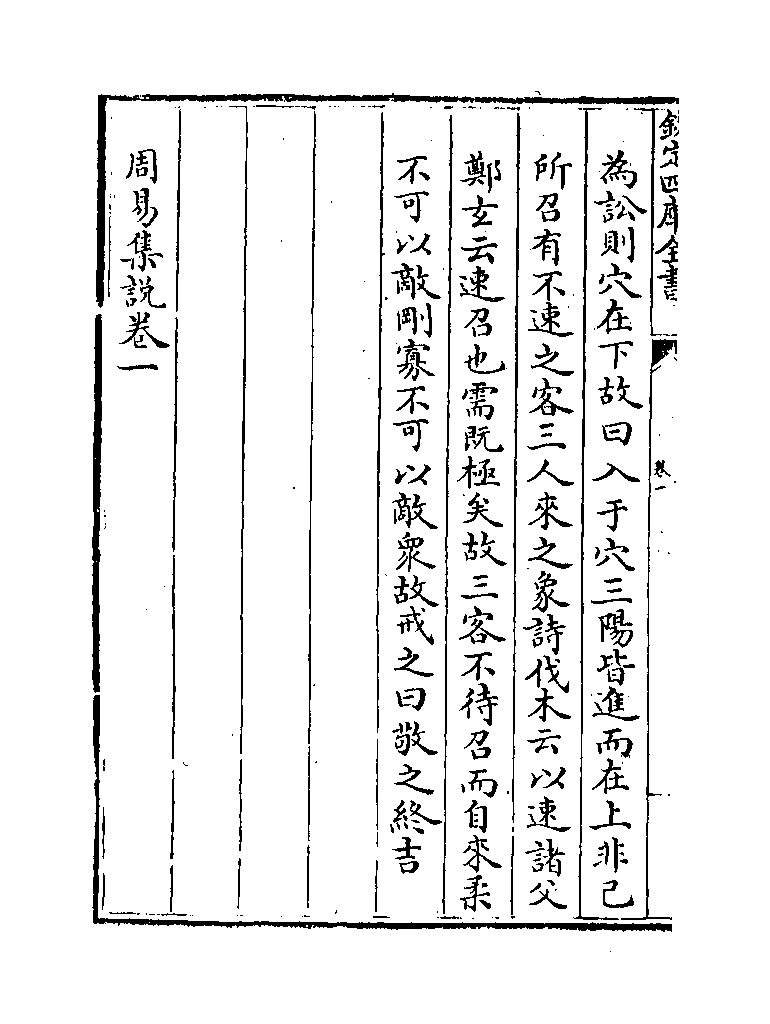 欽定四庫全書
卷一
為訟則穴在下故曰入于穴三陽皆進而在上非己
所召有不速之客三人來之象詩伐木云以速諸父
鄭𤣥云速召也需既極矣故三客不待召而自來柔
不可以敵剛寡不可以敵衆故戒之曰敬之終吉
周易集説卷一